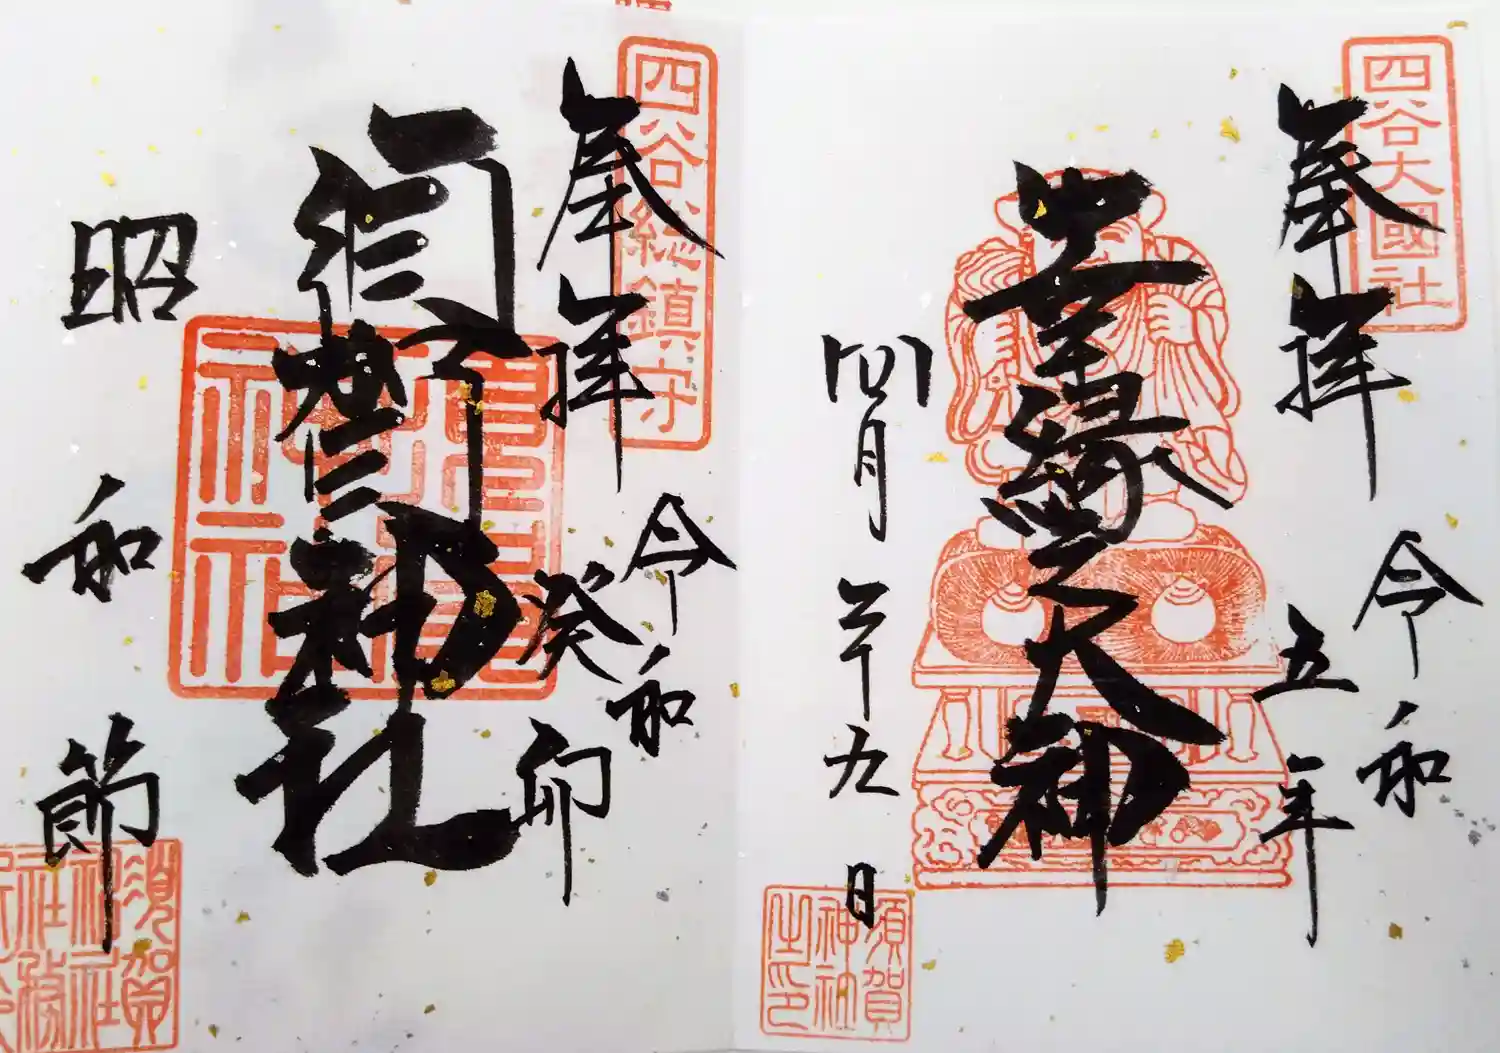 四谷大國社
奉拝
令和
五年
幸縁之大神
四月二十九日
須賀
神社
之印
四谷總鎮守
奉拝
令和
癸卯
須賀神社
昭和節
須賀
神社
社務